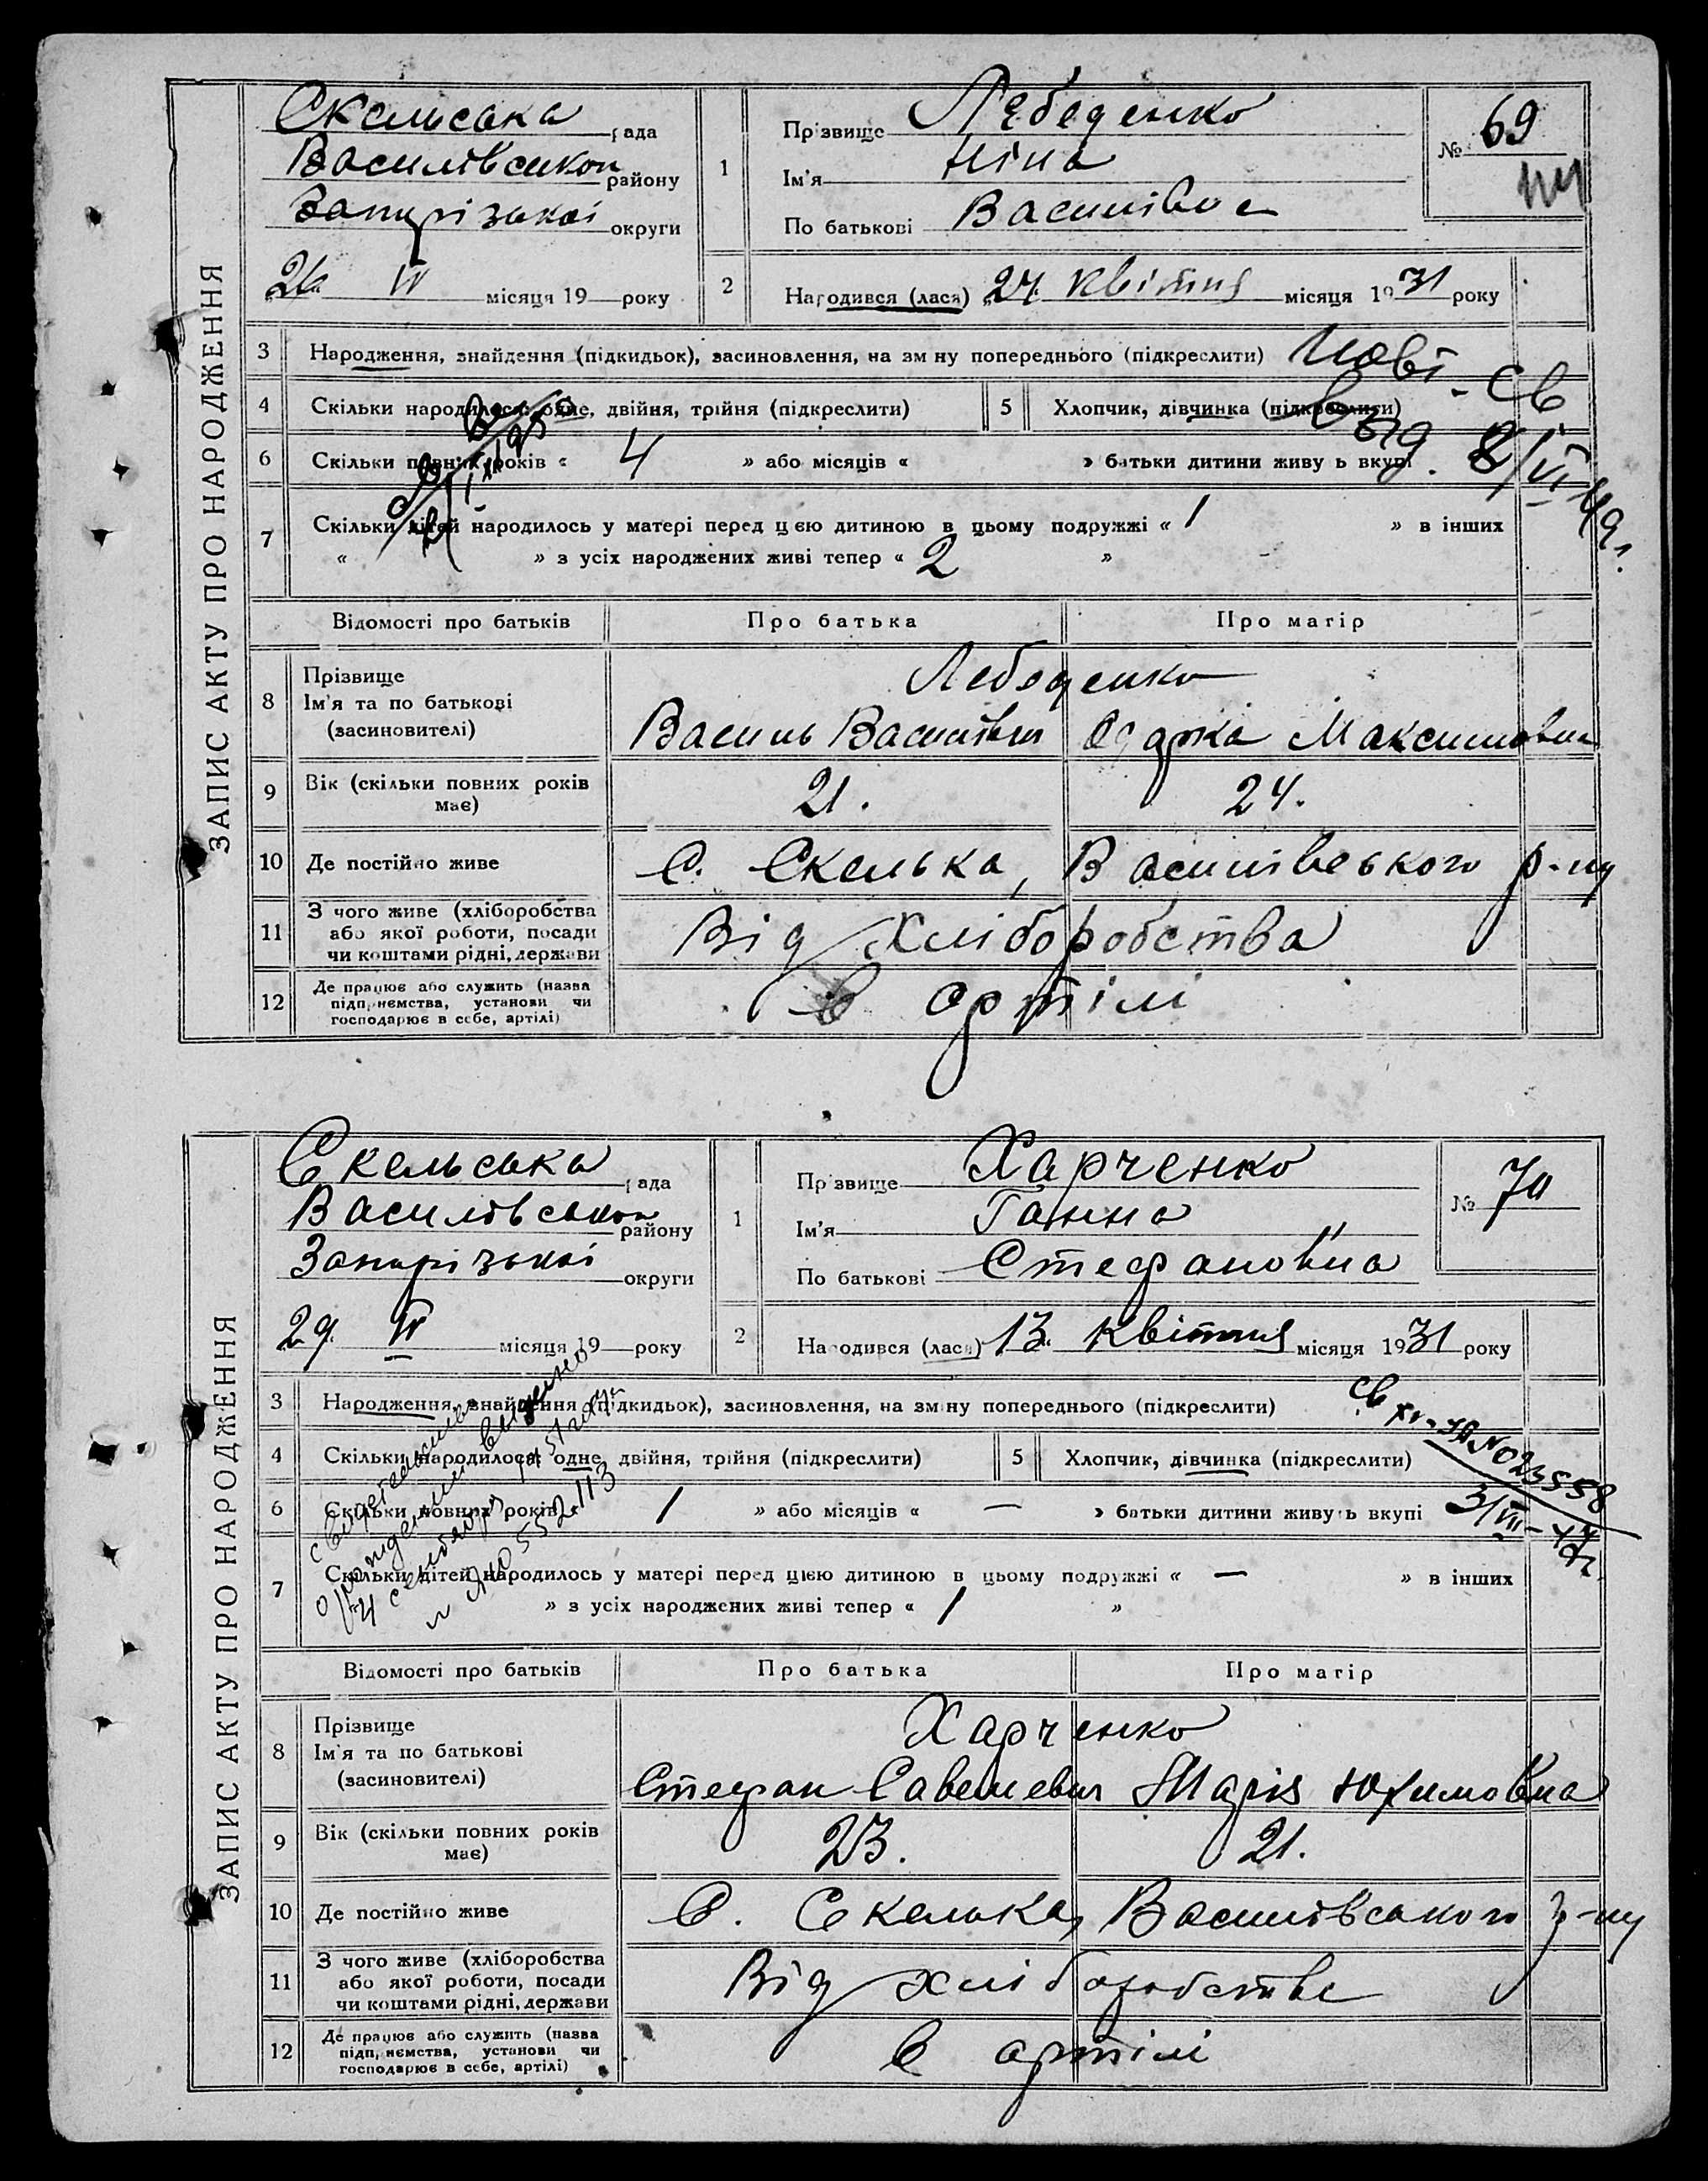 ЗАПИС АКТУ ПРО НАРОДЖЕННЯ
Скельська рада
Василівськон району
Запорізької округи
26 IV місяця 19 року
1 Прізвище Лебеденко
Ім'я Ніна
По батькові Василівна
№ 69
2 Народився (лася) 24 квітня місяця 1931 року
3 Народження, знайдення (підкидьок), засиновлення, на зміну попереднього (підкреслити)
4 Скільки народилося: одне, двійня, трійня (підкреслити)
5 Хлопчик, дівчинка (підкреслити)
Св
выд. 8/VI 49г.
6 Скільки повних років « 4 » або місяців « » батьки дитини живуть вкупі
7 Скільки дітей народилось у матері перед цією дитиною в цьому подружжі « 1 » в інших
« » з усіх народжених живі тепер « 2 »
Відомості про батьків Про батька Про матір
8 Прізвище
Ім'я та по батькові
(засиновителі)
Лебеденко
Василь Васильович Одарка Максимовна
9 Вік (скільки повних років має) 21. 24.
10 Де постійно живе С. Скелька, Василівського р-ну
11 З чого живе (хліборобства
або якої роботи, посади
чи коштами рідні, держави
Від хліборобства
12 Де працює або служить (назва
підприємства, установи чи
господарює в себе, артілі)
в артілі
ЗАПИС АКТУ ПРО НАРОДЖЕННЯ
Скельська рада
Василівськон району
Запорізької округи
29. IV місяця 19 року
1 Прізвище Харченко
Ім'я Ганна
По батькові Стефановна
№ 70
2 Народився (лася) 13. квітня місяця 1931 року
3 Народження, знайдення (підкидьок), засиновлення, на зміну попереднього (підкреслити)
4 Скільки народилося: одне, двійня, трійня (підкреслити)
5 Хлопчик, дівчинка (підкреслити)
св № 023558
3/VII-47г.
6 Скільки повних років « 1 » або місяців « — » батьки дитини живуть вкупі
7 Скільки дітей народилось у матері перед цією дитиною в цьому подружжі « — » в інших
» з усіх народжених живі тепер « 1 »
свидетельство
о рождении выдано
4 сентября 51 года
№ 552113
Відомості про батьків Про батька Про матір
8 Прізвище
Ім'я та по батькові
(засиновителі)
Харченко
Стефан Савелевич Марія Юхимовна
9 Вік (скільки повних років має) 23. 21.
10 Де постійно живе С. Скелька, Василівського р-ну
11 З чого живе (хліборобства
або якої роботи, посади
чи коштами рідні, держави
Від хліборобства
12 Де працює або служить (назва
підприємства, установи чи
господарює в себе, артілі)
в артілі